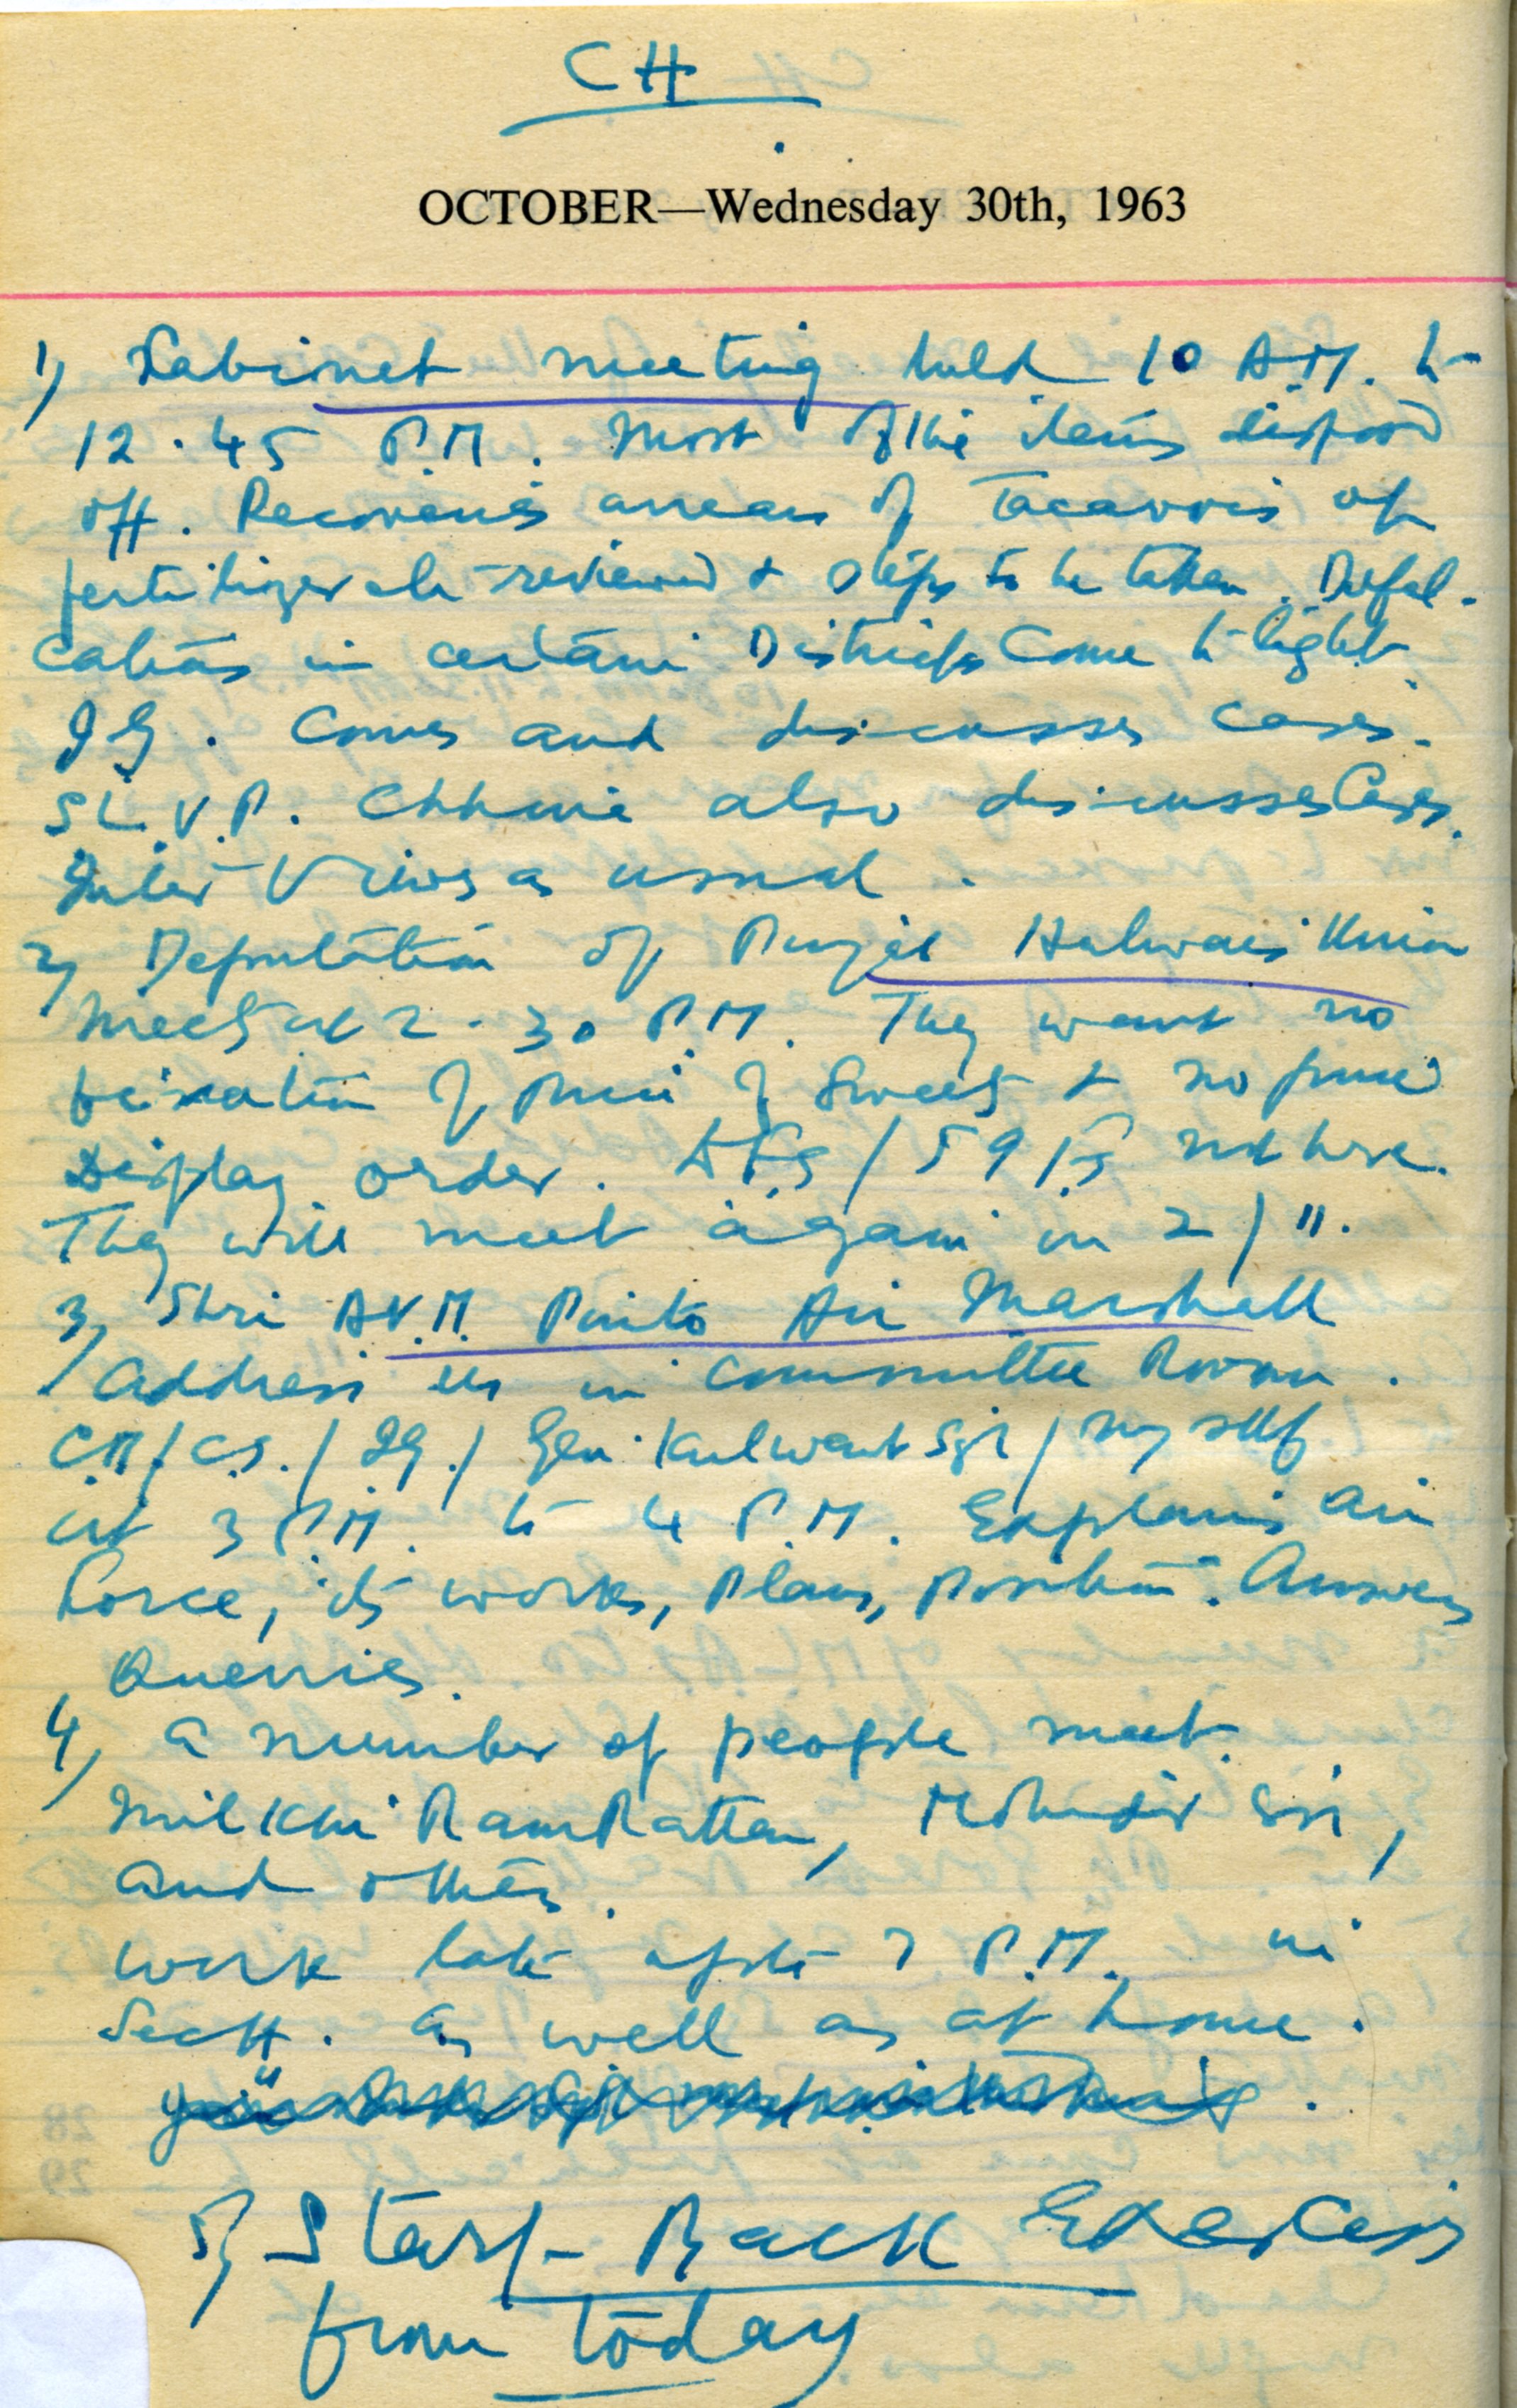 CH
OCTOBER—Wednesday 30th, 1963
1) Cabinet meeting held 10 A.M. to
12.45 P.M. Most of the items disposed
off. Recoveries arrears of Taccavis of
fertilizer etc reviewed & steps to be taken. Defal-
cations in certain Districts come to light.
I.G. Comes and discusses cases.
S.L.V.P. also discusses Cases.
Inter Views as usual.
2) Deputation of Punjab Halwais Union
meets at 2.30 P.M. They want no
fixation of price of Sweets & no price
Display order. not here.
They will meet again on 2/11.
3) Shri A.V.M. Pinto Air Marshall
Address us in Committee Room.
C.M/C.S./I.G./Gen. Kulwant Sgh/myself
at 3 P.M. to 4 P.M. Explains Air
Force, its works, Plans, Position. Answers
Queries.
4) A number of people meet.
Milkhi Ram Rattan, Mohinder Sgh,
and others.
Work late after 7 P.M. in
Sectt. as well as at home.
5) Start Back Exercises
from today